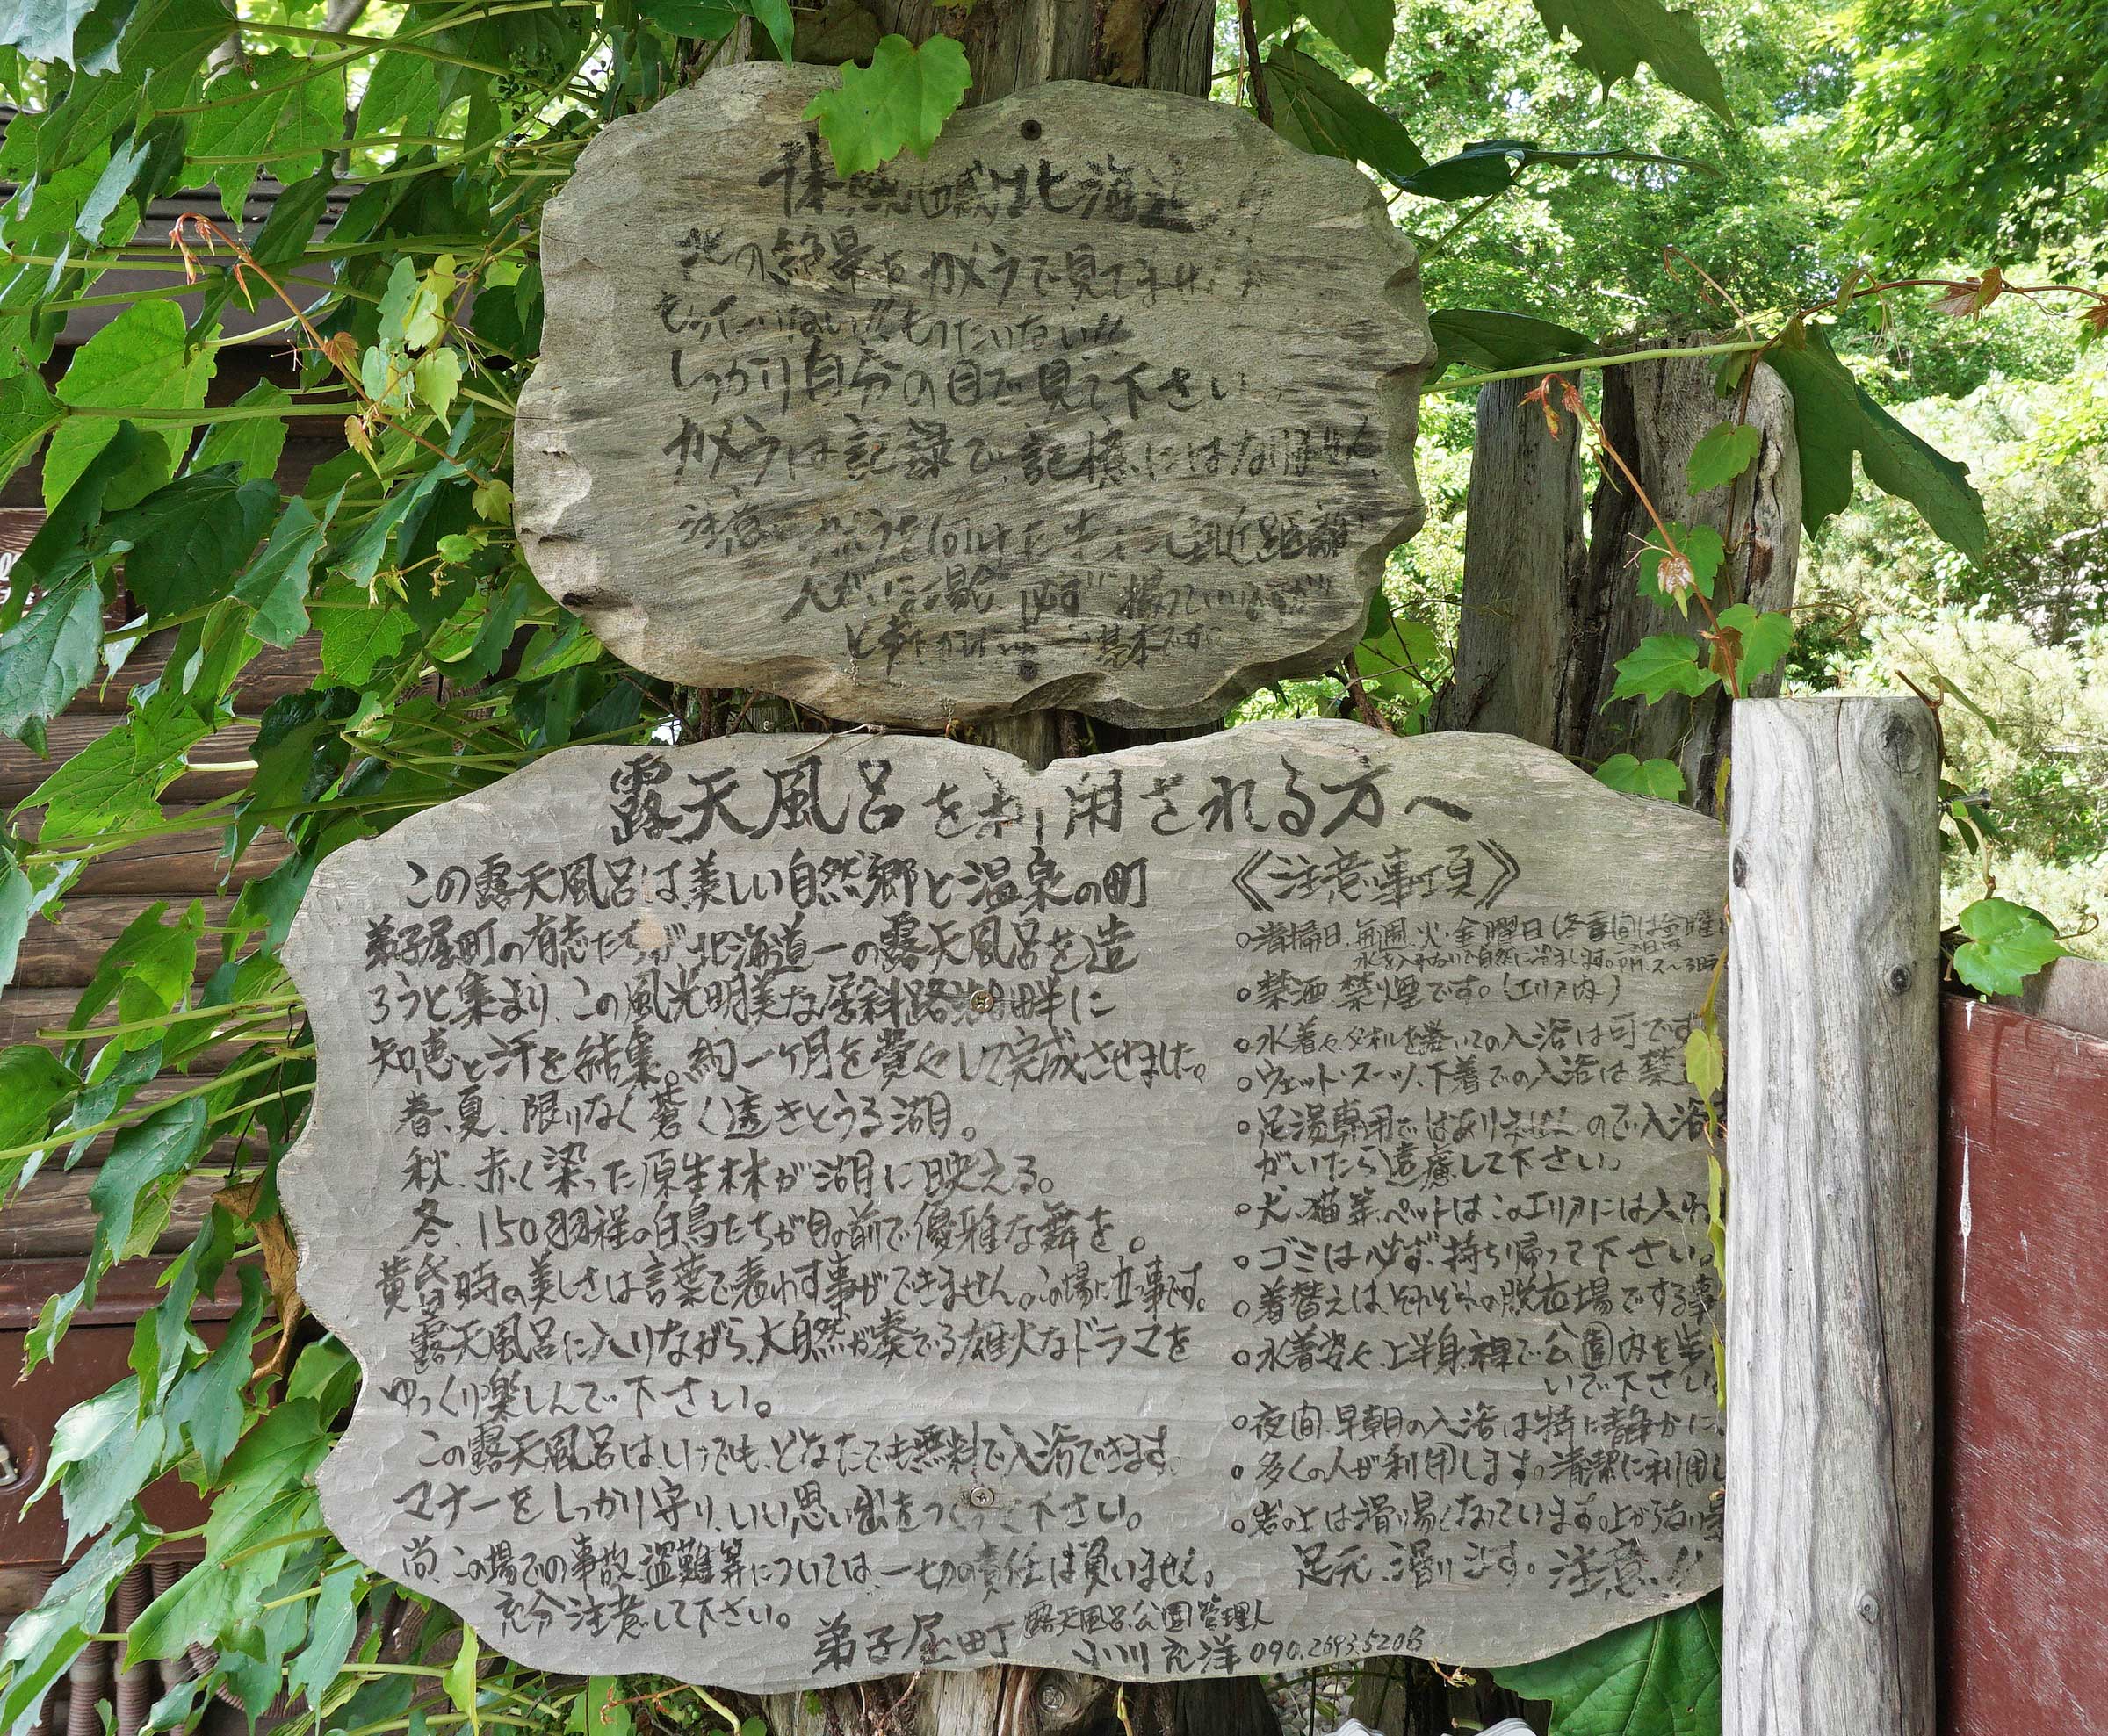 北海道
北の絶景をカメラで見てませんか
もったいない!!もったいない!!
しっかり自分の目で見て下さい。
カメラは記録で、記憶にはなりません
至近距離
人がいる場合、必ず撮っていいですか
と声をかける 基本です。
露天風呂を利用される方へ
この露天風呂は美しい自然郷と温泉の町
弟子屈町の有志たちが北海道一の露天風呂を造
ろうと集まり、この風光明美な屈斜路湖畔に
知恵と汗を結集。約一ヶ月を費やして完成させました。
春、夏、限りなく蒼く透きとうる湖。
秋、赤く染った原生林が湖に映える。
冬、150羽程の白鳥たちが目の前で優雅な舞を。
黄昏時の美しさは言葉で表わす事ができません。この場に立つ事です。
露天風呂に入りながら、大自然が奏でる雄大なドラマを
ゆっくり楽しんで下さい。
この露天風呂は、いつでも、どなたでも無料で入浴できます。
マナーをしっかり守り、いい思い出をつくって下さい。
尚、この場での事故、盗難等については、一切の責任は負いません。
充分注意して下さい。
弟子屈町 露天風呂公園管理人
小川 洋 090.2693.5208
《注意事項》
○清掃日、毎週、火・金曜日(冬季間は金曜
水を入れないで自然に冷まします。PM.2〜3時
○禁酒 禁煙です。(エリア内)
○水着や、タオルを巻いての入浴は可です
○ウェット・スーツ、下着での入浴は禁止
○足湯専用ではありませんので、入浴
がいたら遠慮して下さい。
○犬、猫等、ペットはこのエリアには入れ
○ゴミは必ず、持ち帰って下さい。
○着替えは、それぞれの脱衣場でする事
○水着姿や、上半身裸で公園内を歩
いで下さい
○夜間、早朝の入浴は特に静かに、
○多くの人が利用します。清潔に利用し
○岩の上は滑り易くなっています。上がらない
足元、滑ります。注意!!